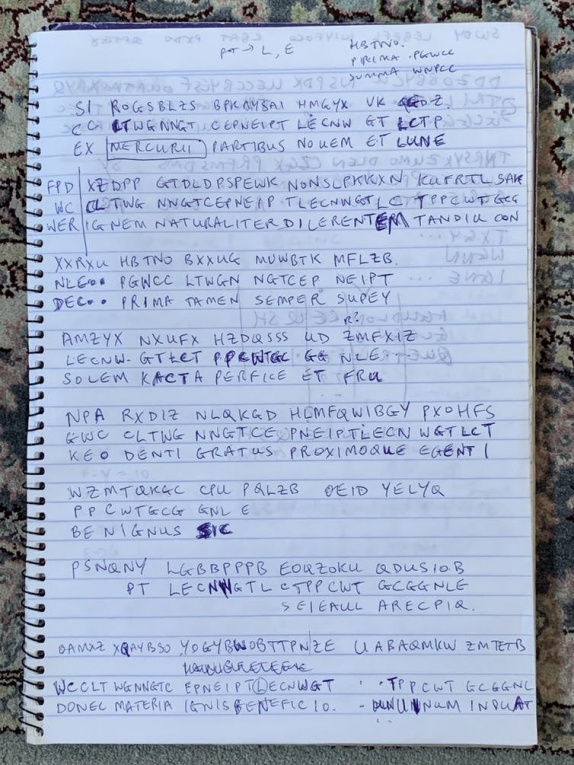 pt → L, E
HBTNO.
PRIMA. PGWCC
SUMMA WNPCC
SI ROGSBLZS BPKAYBAI HMGYX VK
CCLTWGNNGT CEPNEIPT LECNW GT LCTP
EX MERCURII PARTIBUS NOUEM ET LUNE
FPD XZDPP GTDLDPSPEWK NONSLPKKXN KUFRTLSAK
WC CLTWG NNGTCEPNEIP TLECNNGTLC TPPCWTGCG
WER IGNEM NATURALITER DILERENTEM TANDIU CON
XXRXU HBTNO BXXUG MUWBTK MFLZB.
NLE.. PGWCC LTWGN NGTCEP NEIPT
DEC.. PRIMA TAMEN SEMPER SUPEY
R?
AMZYX NXUFX HZDQSSS UD ZMFXIZ
LECNW- GTLCT PPCWTGC GG NLE
SOLEM KACTA PERFICE ET FRU
NPA RXDIZ NLQKGD HLMFQWIBGY PXOHFS
GWC CLTWG NNGTCE PNEIPTLECN WGTLCT
KEO DENTI GRATUS PROXIMOQUE EGENTI
WZMTQKGC CPU PQLZB OEID YELYQ
PPCWTGCG GNL E
BENIGNUS SIC
PSNQNY LGBBPPPB EOQZOKU QDUSIOB
PT LECNNGTL CTPPCWT GCGGNLE
SEIEAULL ARECPIQ.
OAMXZ XQAYBSO YOGYBWOBTTPNZE UABAQMKW ZMTETB
WCCLT WGNNGTC EPNEIPTLECNWGT TPPCWT GCGGNL
DONEC MATERIA IGNISBENEFICIO. - INDUAT